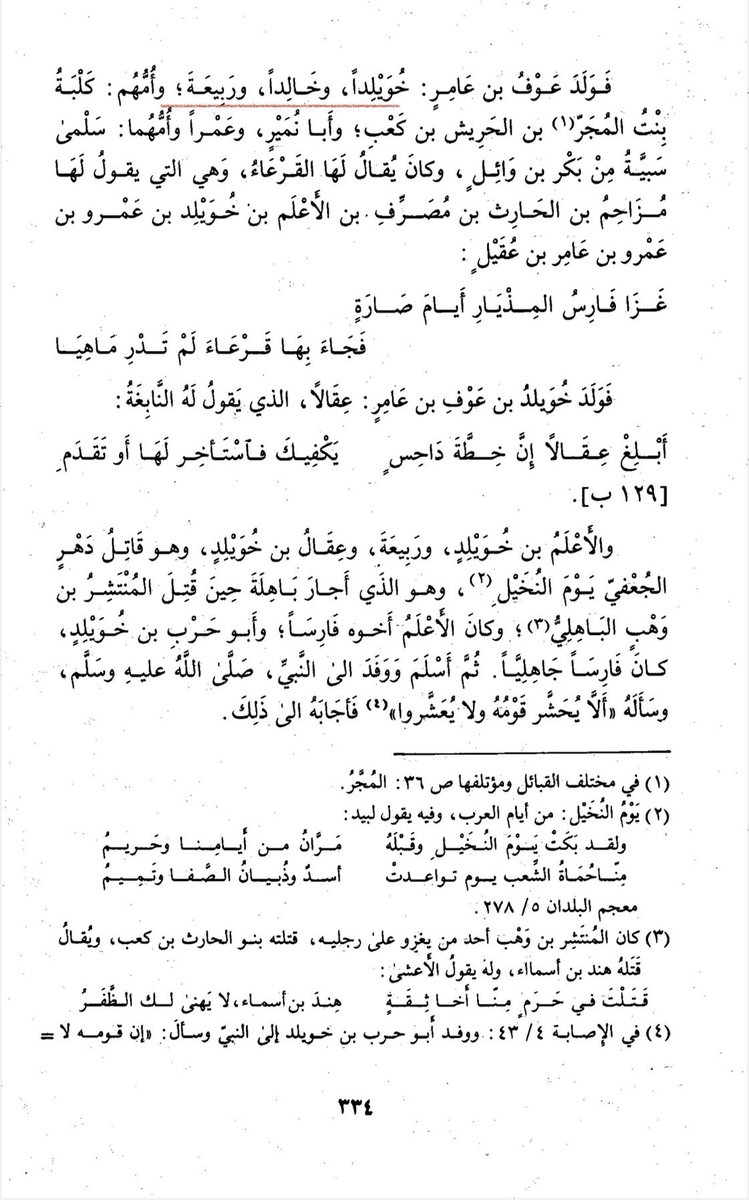 فَوَلَدَ عَوْفُ بن عَامِرٍ: خُوَيْلِداً، وخَالِداً، ورَبِيعَةَ؛ وأُمُّهُم: كَلْبَةُ
بِنْتُ المُجَرّ(١) بن الحَرِيش بن كَعْبٍ؛ وأَبا نُمَيْرٍ، وعَمْراً وأُمُّهُما: سَلْمىٰ
سَبِيَّةُ مِنْ بَكْر بن وَائِلٍ، وكانَ يُقالُ لَهَا القَرْعَاءُ، وَهي التي يقولُ لَهَا
مُزَاحِمُ بن الحَارِث بن مُصَرِّفِ بن الأَعْلَم بن خُوَيْلِد بن عَمْرو بن
عَمْرو بن عَامِر بن عُقَيْلٍ:
غَزَا فَارِسُ المِذْيَارِ أَيامَ صَارَةٍ
فَجَاءَ بِهَا قَرْعَاءَ لَمْ تَدْرِ مَاهِيَا
فَوَلَدَ خُوَيلدُ بن عَوْفِ بن عَامِرٍ: عِقَالًا، الذي يَقولُ لَهُ النَّابِغَةُ:
أَبْلِغْ عِقَالًا إِنَّ خِطَّةَ دَاحِسٍ يَكْفِيكَ فٱسْتَأخِر لَهَا أَو تَقَدَم
[١٢٩ ب].
والأَعْلَمُ بن خُوَيلِدٍ، ورَبِيعَةَ، وعِقَالُ بن خُوَيْلِدٍ، وهو قَاتِلُ دَهْرٍ
الجُعْفيّ يَوْمَ النُخَيْلِ(٢)، وهو الذي أَجارَ بَاهِلَةَ حِينَ قُتِلَ المُنْتَشِرُ بن
وَهْبٍ البَاهِليُّ(٣)؛ وكانَ الأَعْلَمُ أَخوه فَارِسَاً؛ وأَبو حَرْبِ بن خُوَيْلِدٍ،
كانَ فَارِسَاً جَاهِليَّاً. ثُمَّ أَسْلَمَ وَوَفَدَ الىٰ النَّبيِّ، صَلَّىٰ اللَّهُ عليهِ وسَلَّم،
وسَأَلَهُ «أَلَّا يُحَشَّر قَوْمُهُ ولا يُعَشَّروا»(٤) فَأجابَهُ الىٰ ذَلِكَ.
(١) في مختلف القبائل ومؤتلفها ص ٣٦: المُجَّرُ.
(٢) يَوْمُ النُخَيْل: من أيام العرب، وفيه يقول لبيد:
ولقد بَكَتْ يَـوْمَ النُـخَيْـلِ وقَبْلَهُ مَـرَّانُ من أَيـامِـنا وحَـريـمُ
مِنّـا حُمَاةُ الشِّعب يـوم تـواعـدتْ أسدٌ وذُبيـانُ الصَّفـا وتَمِيـمُ
معجم البلدان ٥/ ٢٧٨.
(٣) كان المُنتَشِر بن وَهْب أحد من يغزو علىٰ رجليه، قتلته بنو الحارث بن كعب، ويُقالُ
قَتَلهُ هند بن أسمااء، وله يقولُ الأَعشىٰ:
قَتَلْتَ في حَرَمٍ مِنّـا أخا ثِقَـةٍ هِندَ بن أسماء، لا يَهنىٰ لـك الظَّفَرُ
(٤) في الإِصابة ٤/ ٤٣: ووفد أَبو حرب بن خويلد إلىٰ النبيّ وسألَ: «إن قومه لا =
٣٣٤